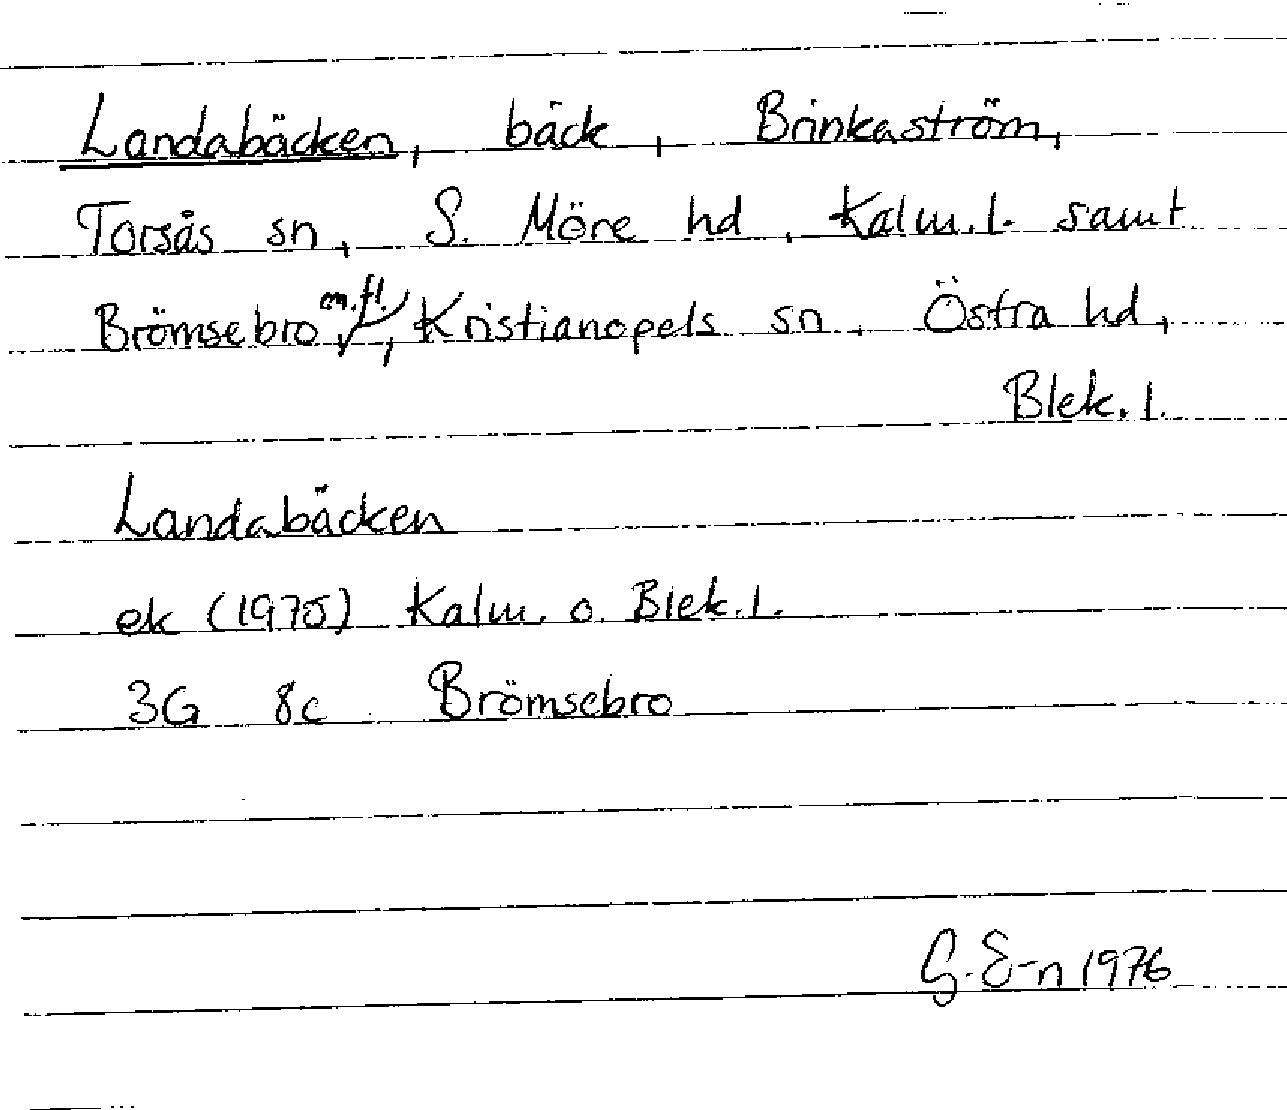 Landabäcken, bäck, Brinkaström,
Torsås sn, S. Möre hd, Kalm.l. samt
Brömsebro m.fl., Kristianopels sn, Östra hd,
Blek.l.
Landabäcken
ek (1975) Kalm. o. Blek.l.
3G 8c Brömsebro
G.E-n 1976